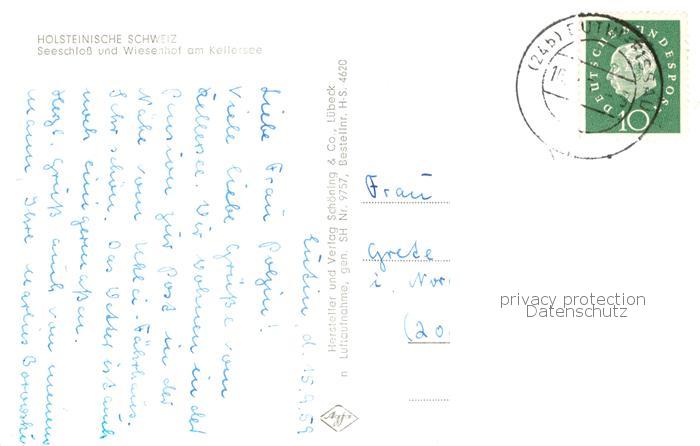 HOLSTEINISCHE SCHWEIZ
Seeschloß und Wiesenhof am Kellersee
Eutin, d. 15.9.59
Liebe Frau
Viele liebe Grüße vom
Kellersee. Wir wohnen in der
Pension zur Post in der
Nähe vom Uklei-Fährhaus.
Sehr schön. Das Wetter ist auch
noch einigermaßen.
Herzl. Grüß auch von meinem
Mann, Ihre
Hersteller und Verlag Schöning & Co., Lübeck
Luftaufnahme, gen. SH Nr. 9757, Bestellnr. H-S. 4620
Agfa
Frau
Grete
i. Nor
(20
privacy protection
Datenschutz
(24b) EUTIN
DEUTSCHE BUNDESPOST
10